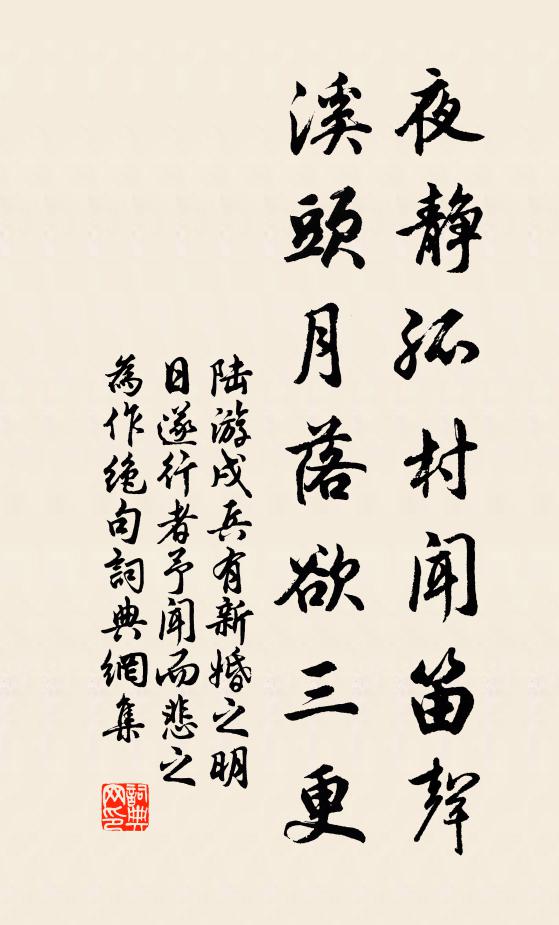 夜静孤村闻笛聲
溪頭月落欲三更
陆游戍兵有新婚之明
日遂行者予闻而悲之
為作绝句詞典網集
詞典网印